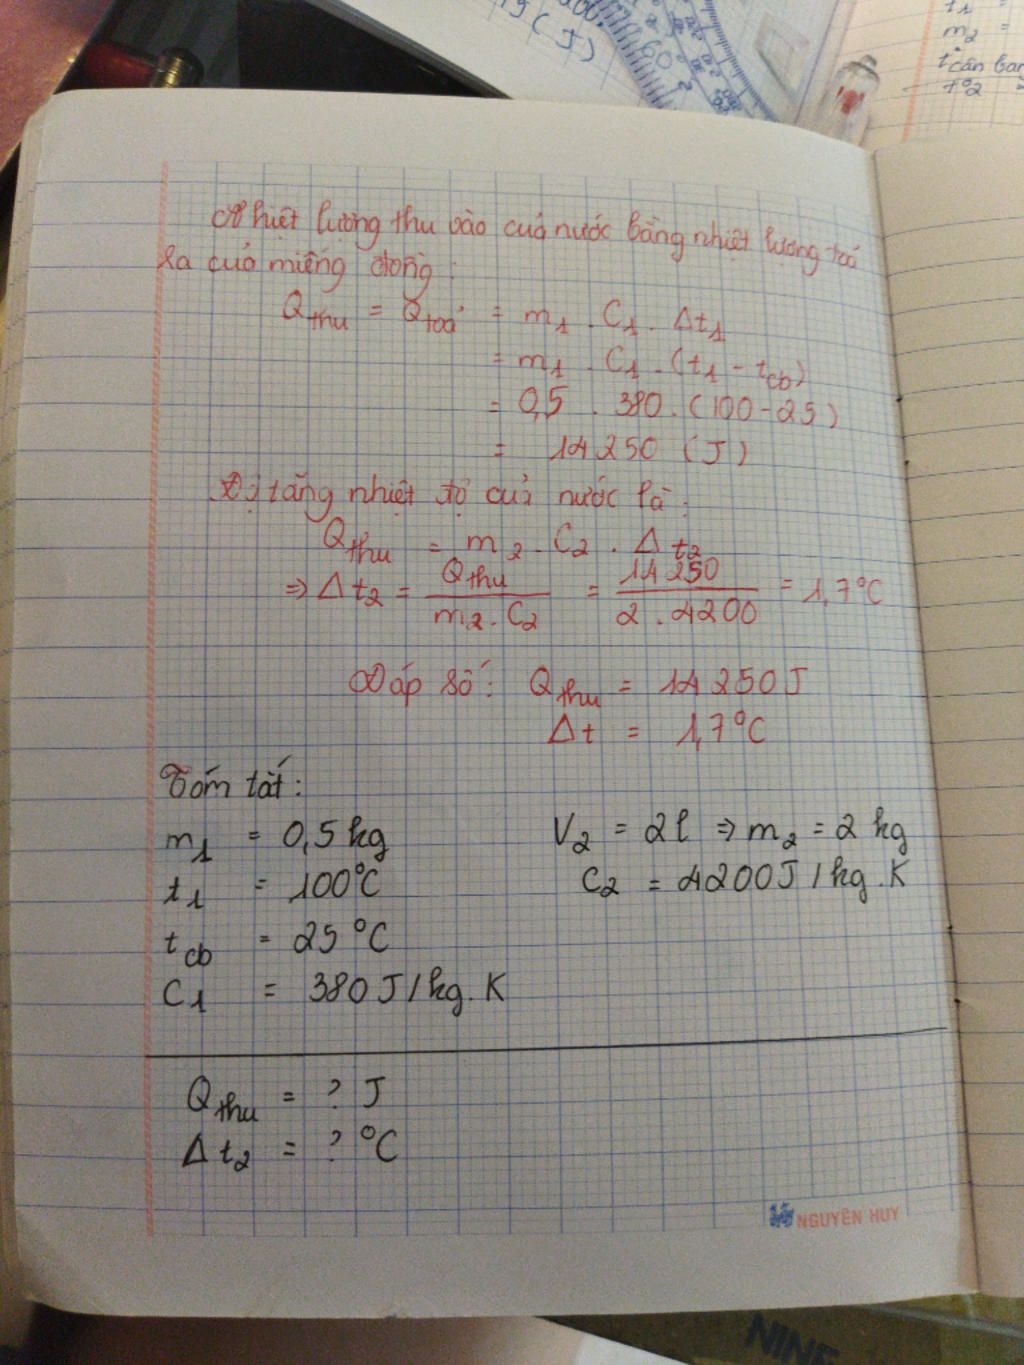 19 (J)
t1 =
m2 =
t°cân ban
t°2
Nhiệt lượng thu vào của nước bằng nhiệt lượng toả
ra của miếng đồng:
Qthu = Qtoả = m1 . C1 . Δt1
= m1 . C1 . (t1 - tcb)
= 0,5 . 380 . (100 - 25)
= 14 250 (J)
Độ tăng nhiệt độ của nước là:
Qthu = m2 . C2 . Δt2
=> Δt2 = Qthu / m2 . C2 = 14 250 / 2 . 4200 = 1,7°C
Đáp số: Qthu = 14 250 J
Δt = 1,7°C
Tóm tắt:
m1 = 0,5 kg V2 = 2l => m2 = 2 kg
t1 = 100°C C2 = 4200J/kg.K
tcb = 25°C
C1 = 380J/kg.K
Qthu = ? J
Δt2 = ? °C
NGUYÊN HUY
NINE